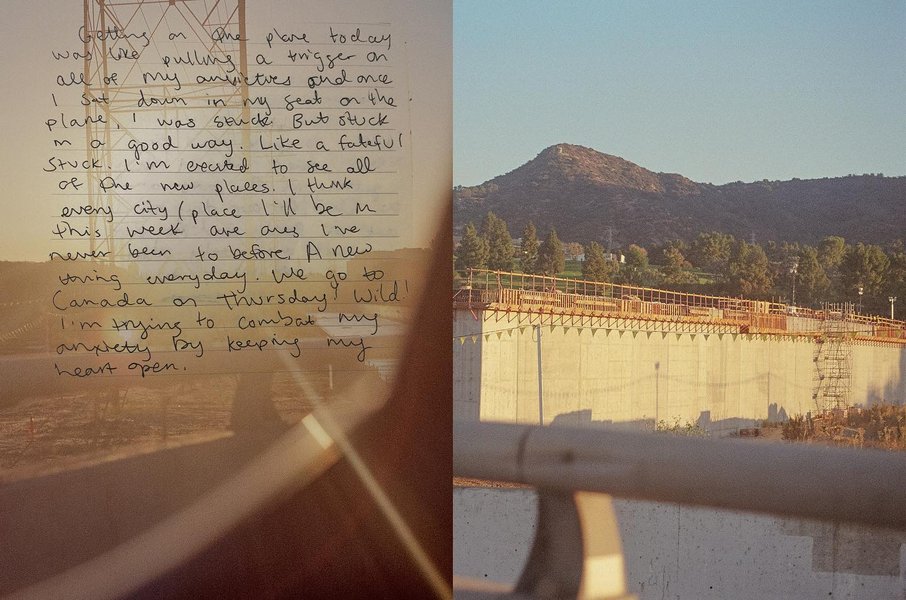 Getting on the plane today
was like pulling a trigger on
all of my anxieties and once
I sat down in my seat on the
plane, I was stuck. But stuck
in a good way. Like a fateful
stuck. I'm excited to see all
of the new places. I think
every city/place I'll be in
this week are ones I've
never been to before. A new
thing everyday. We go to
Canada on Thursday! Wild!
I'm trying to combat my
anxiety by keeping my
heart open.